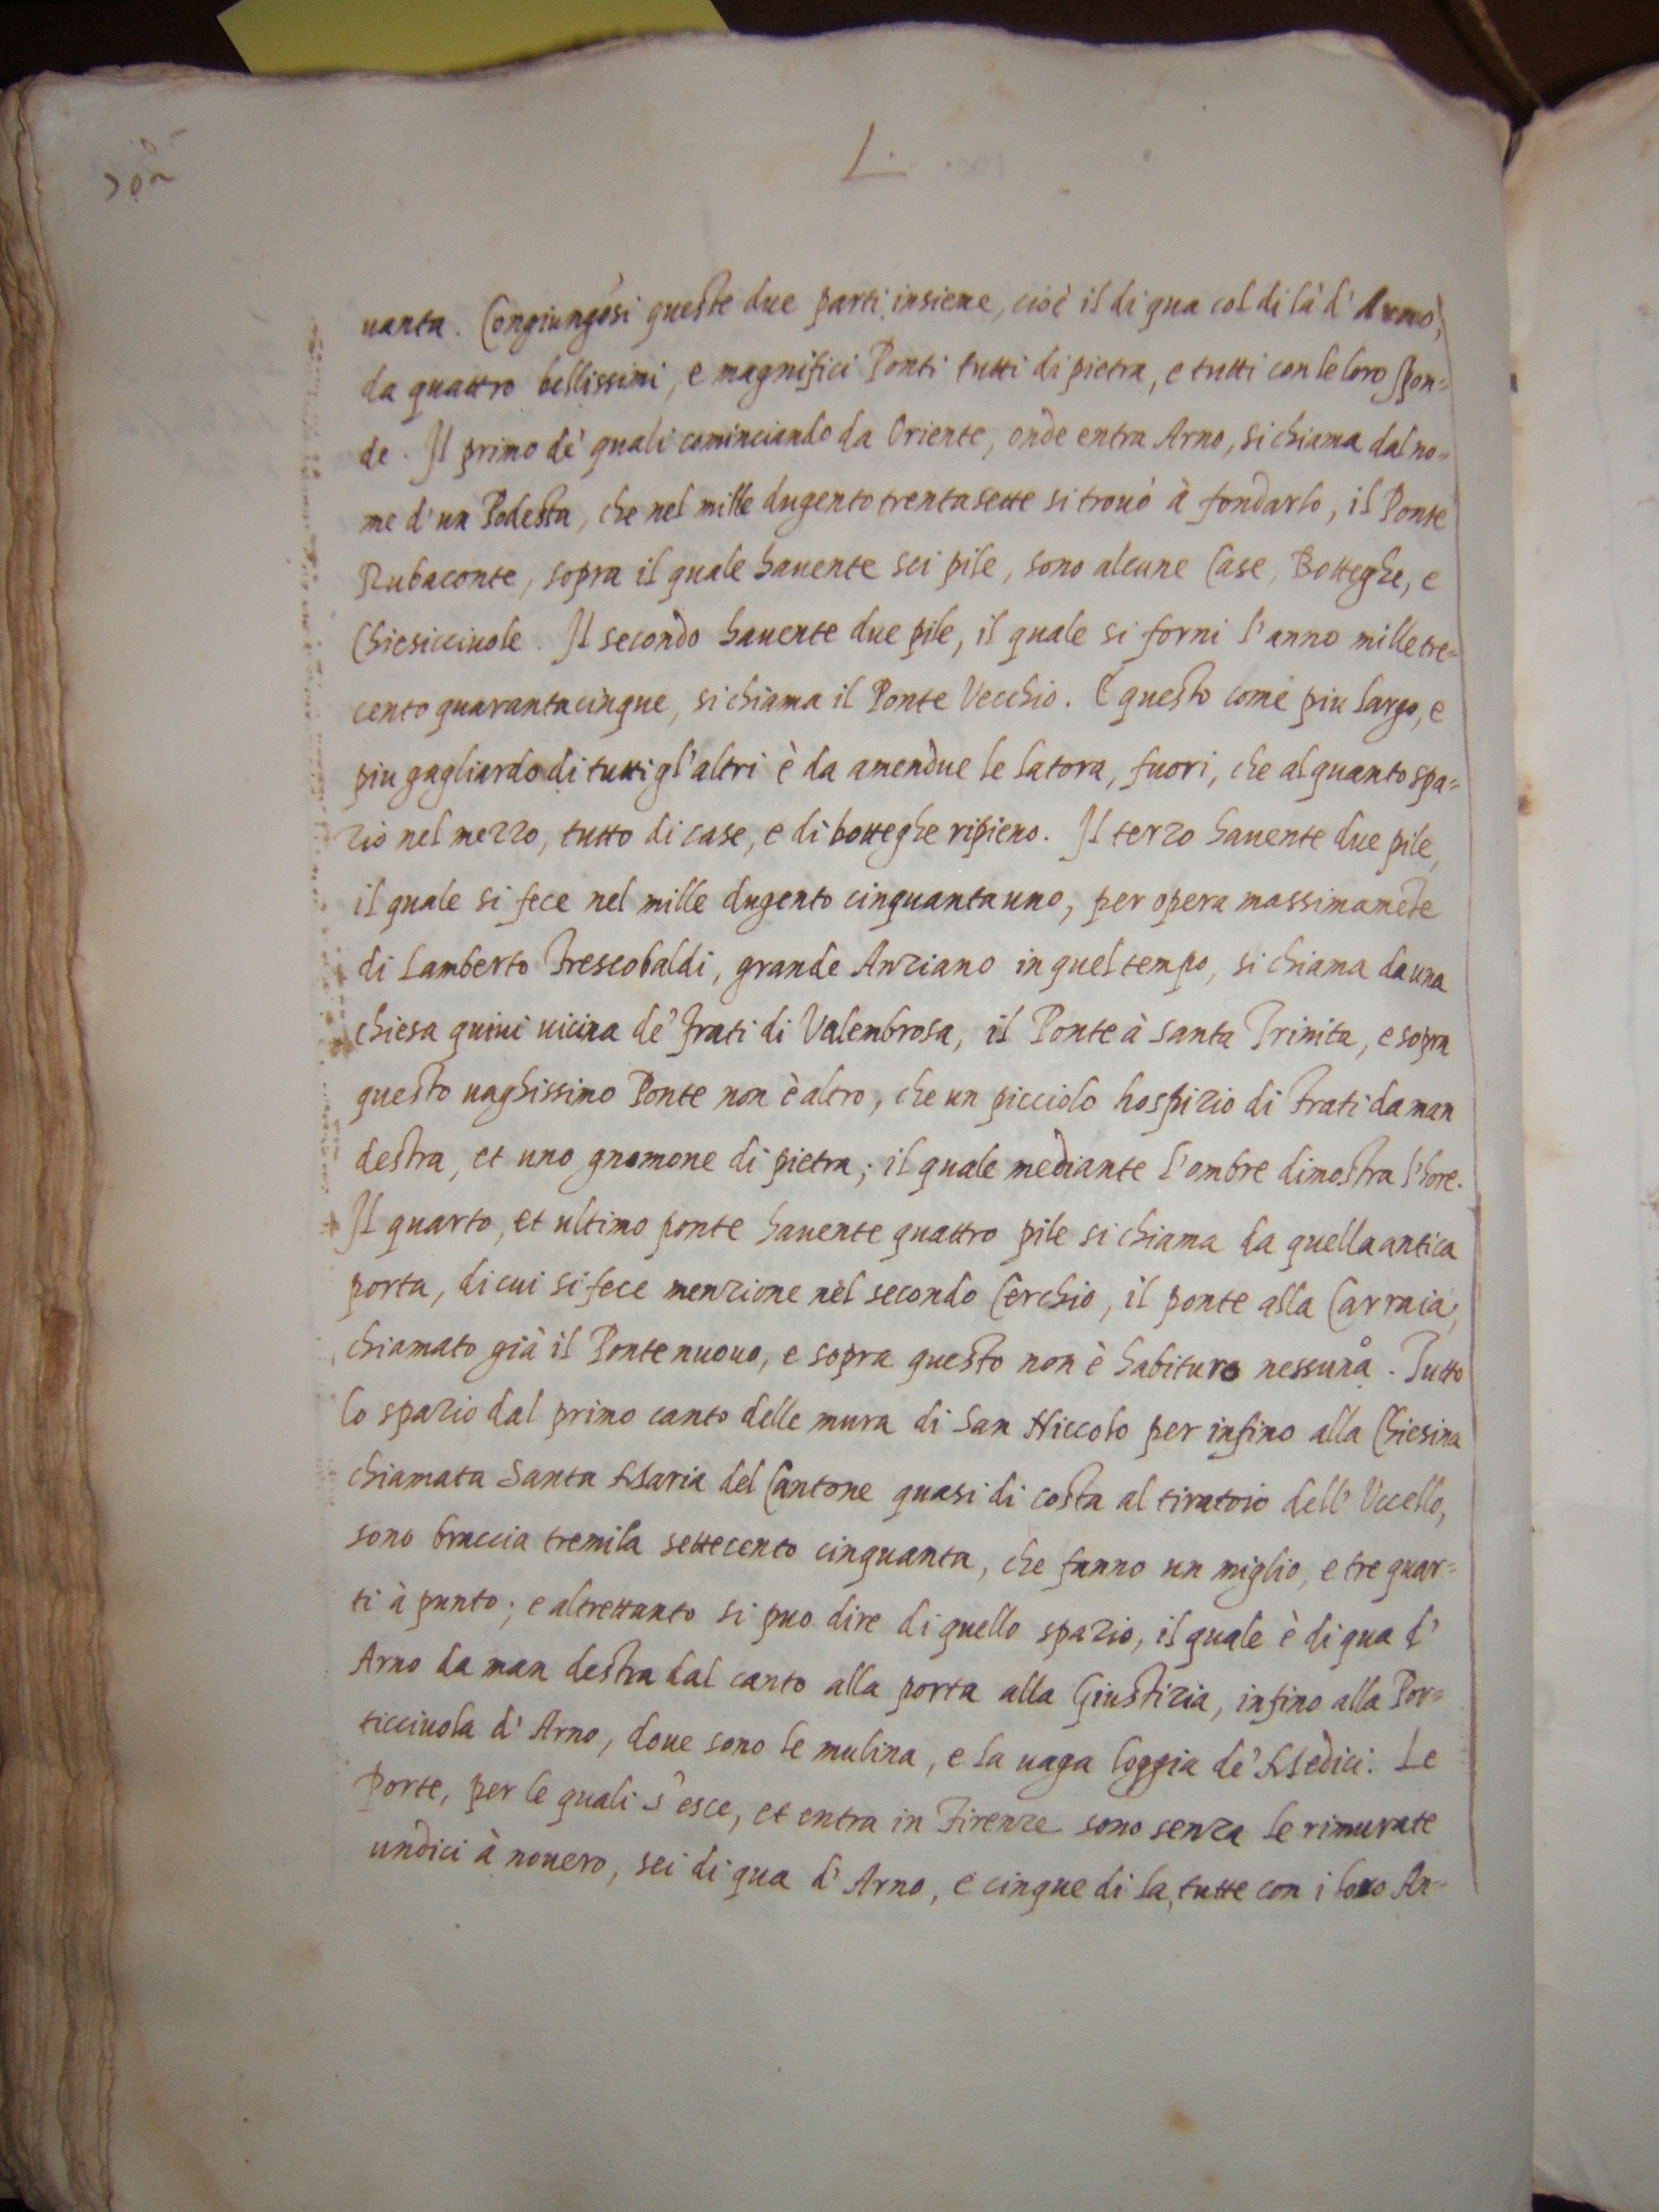 L.
uanta. Congiungōsi queste due parti insieme, cioè il di qua col di là d' Arno,
da quattro bellissimi, e magnifici Ponti tutti di pietra, e tutti con le loro spon=
de. Il primo de' quali cominciando da Oriente, onde entra Arno, si chiama dal no=
me d' un Podesta, che nel mille dugento trentasette si trouò à fondarlo, il Ponte
Rubaconte, sopra il quale hauente sei pile, sono alcune Case, Botteghe, e
Chiesicciuole. Il secondo hauente due pile, il quale si forni l' anno mille tre=
cento quarantacinque, si chiama il Ponte Vecchio. E questo come piu largo, e
piu gagliardo di tutti gl' altri è da amendue le latora, fuori, che alquanto spa=
zio nel mezzo, tutto di case, e di botteghe ripieno. Il terzo hauente due pile,
il quale si fece nel mille dugento cinquanta uno, per opera massimamēte
di Lamberto Frescobaldi, grande Anziano in quel tempo, si chiama da una
chiesa quiui uicina de' frati di Valembrosa, il Ponte à Santa Trinita, e sopra
questo uaghissimo Ponte non è altro, che un picciolo hospizio di frati da man
destra, et uno gnomone di pietra; il quale mediante l' ombre dimostra l' hore.
Il quarto, et ultimo ponte hauente quattro pile si chiama da quella antica
porta, di cui si fece menzione nel secondo Cerchio, il ponte alla Carraia,
chiamato già il Ponte nuouo, e sopra questo non è habituro nessuno. Tutto
lo spazio dal primo canto delle mura di San Niccolo per infino alla Chiesina
chiamata Santa Maria del Cantone quasi di costa al tiratoio dell' Vccello,
sono braccia tremila settecento cinquanta, che fanno un miglio, e tre quar=
ti à punto; e altrettanto si puo dire di quello spazio, il quale è di qua d'
Arno da man destra dal canto alla porta alla Giustizia, infino alla Por=
ticciuola d' Arno, doue sono le mulina, e la uaga loggia de' Medici. Le
Porte, per le quali s' esce, et entra in Firenze sono senza le rimurate
undici à nouero, sei di qua d' Arno, e cinque di la, tutte con i loro An=